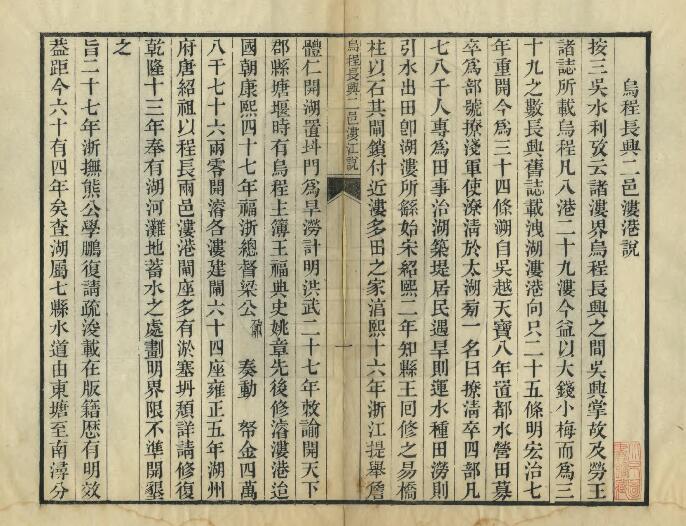 烏程長興二邑漊港說
按三吳水利攷云諸漊界烏程長興之間吳興掌故及勞王
諸誌所載烏程凡八港二十九漊今益以大錢小梅而為三
十九之數長興舊誌載洩湖漊港向只二十五條明宏治七
年重開今為三十四條湖自吳越天寶八年置都水營田募
卒為部號撩淺軍使撩清於太湖旁一名曰撩清卒四部凡
七八千人專為田事治湖築堤居民遇旱則運水種田澇則
引水出田卽湖漊所繇始宋紹熙二年知縣王回修之易橋
柱以石其閘鎖付近漊多田之家淳熙十六年浙江提舉詹
烏程長興二邑漊江說
一
體仁開湖置斗門為旱澇計明洪武二十七年敕諭開天下
郡縣塘堰時有烏程主簿王福典史姚章先後修濬漊港迨
國朝康熙四十七年福浙總督梁公鼐 奏動 帑金四萬
八千七十六兩零開濬各漊建閘六十四座雍正五年湖州
府唐紹祖以程長兩邑漊港閘座多有淤塞坍頹詳請修復
乾隆十三年奉有湖河灘地蓄水之處劃明界限不準開墾
之
旨二十七年浙撫熊公學鵬復請疏浚載在版籍歷有明效
葢距今六十有四年矣查湖屬七縣水道由東塘至南潯分